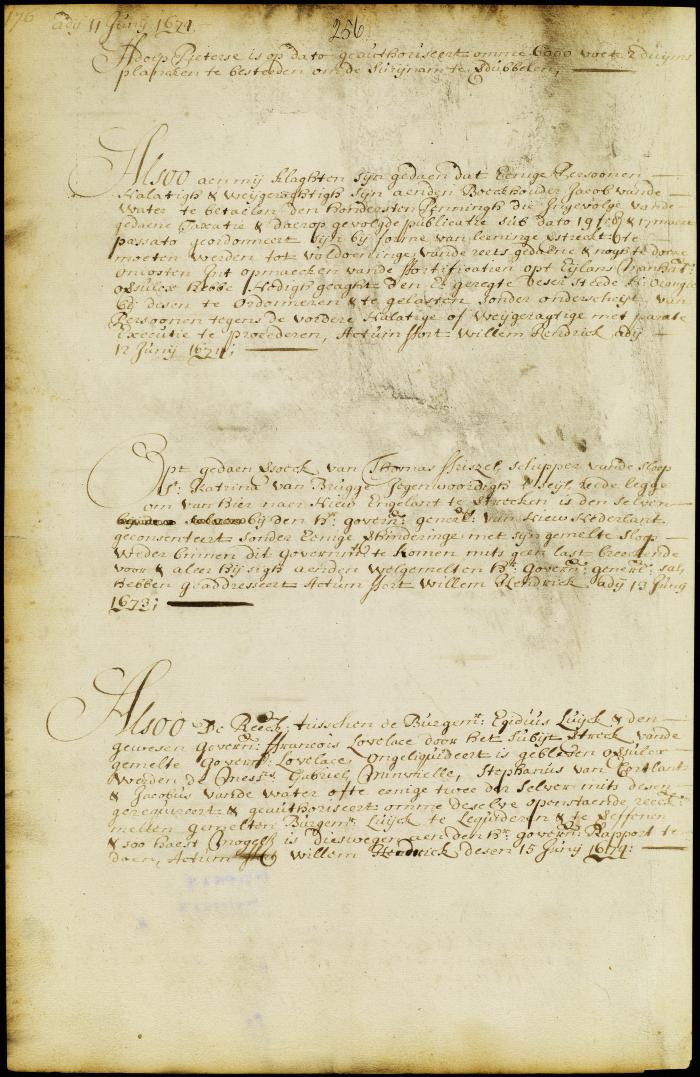 176
256
ady 11 Junÿ 1674
Adolp Pieterse is op dato geauthoriseert omme 6000 voete 2 duijms
plancken te besteden om de Surÿnam te Dubbelen;
Alsoo aen mij klaghten syn gedaen dat Eenige Persoonen
Nalatigh & Weijgeraghtigh Syn aenden Boeckhouder Jacob vande
Water te betaelen den hondersten Penningh die Ingevolge vande
gedaene Taxatie & daerop gevolgde publicatie sub dato 19 feb & 17 maert
passato geordonneert sijn bij forme van leeninge verstreckt te
moeten werden tot voldoeninge vande reets gedaene & noch te doene
oncosten Int opmaecken vande ffortificatien opt Eijlant Manhatt:
ossulcx hebbe Nodigh geaght den E: geregte deser Stede N: Orangie
bij desen te Ordonneren & te gelasten sonder onderscheijt van
Persoonen tegens de vordere Nalatige of Weijgeragtige met parate
Executie te procederen, Actum ffort Willem Hendrick ady
12 Junÿ 1674;
Opt gedaen versoeck van Thomas schipper vande sloep
St: Katrina van Brugge Jegenwoordigh seijl reede legge
om van hier naer Nieu Engelant te vertrecken is den selven
bij den Hr: govern: gener: van Nieu Nederlant
geconsenteert sonder Eenige verhinderinge met syn gemelte sloep
weder binnen dit Governmt te komen mits geen last breeckende
voor & aleer hij sigh aenden welgemelten Hr: govern: gener: sal
hebben geaddresseert Actum ffort Willem Hendrick ady 13 Junÿ
1673;
Alsoo De Reeck: tusschen de Burgemr: Egidius Luijck & den
gewesen govern: ffrancois Lovelace door het subijt vertreck vande
gemelte Govern: Lovelace, ongeliquideert is gebleven ossulcx
werden de Messrs Gabriel Minvielle, Stephanus van Cortlant
& Jacobus vande Water ofte eenige twee der selver mits desen
gerequireert & geauthoriseert omme deselve openstaende reeck:
metten gemelten Burgemr: Luijck te Liquideren & te Effenen
& soo haest mogelk is dieswegen aenden Hr: govern: Rapport te
doen, Actum ffort Willem Hendrick desen 15 Junÿ 1674: